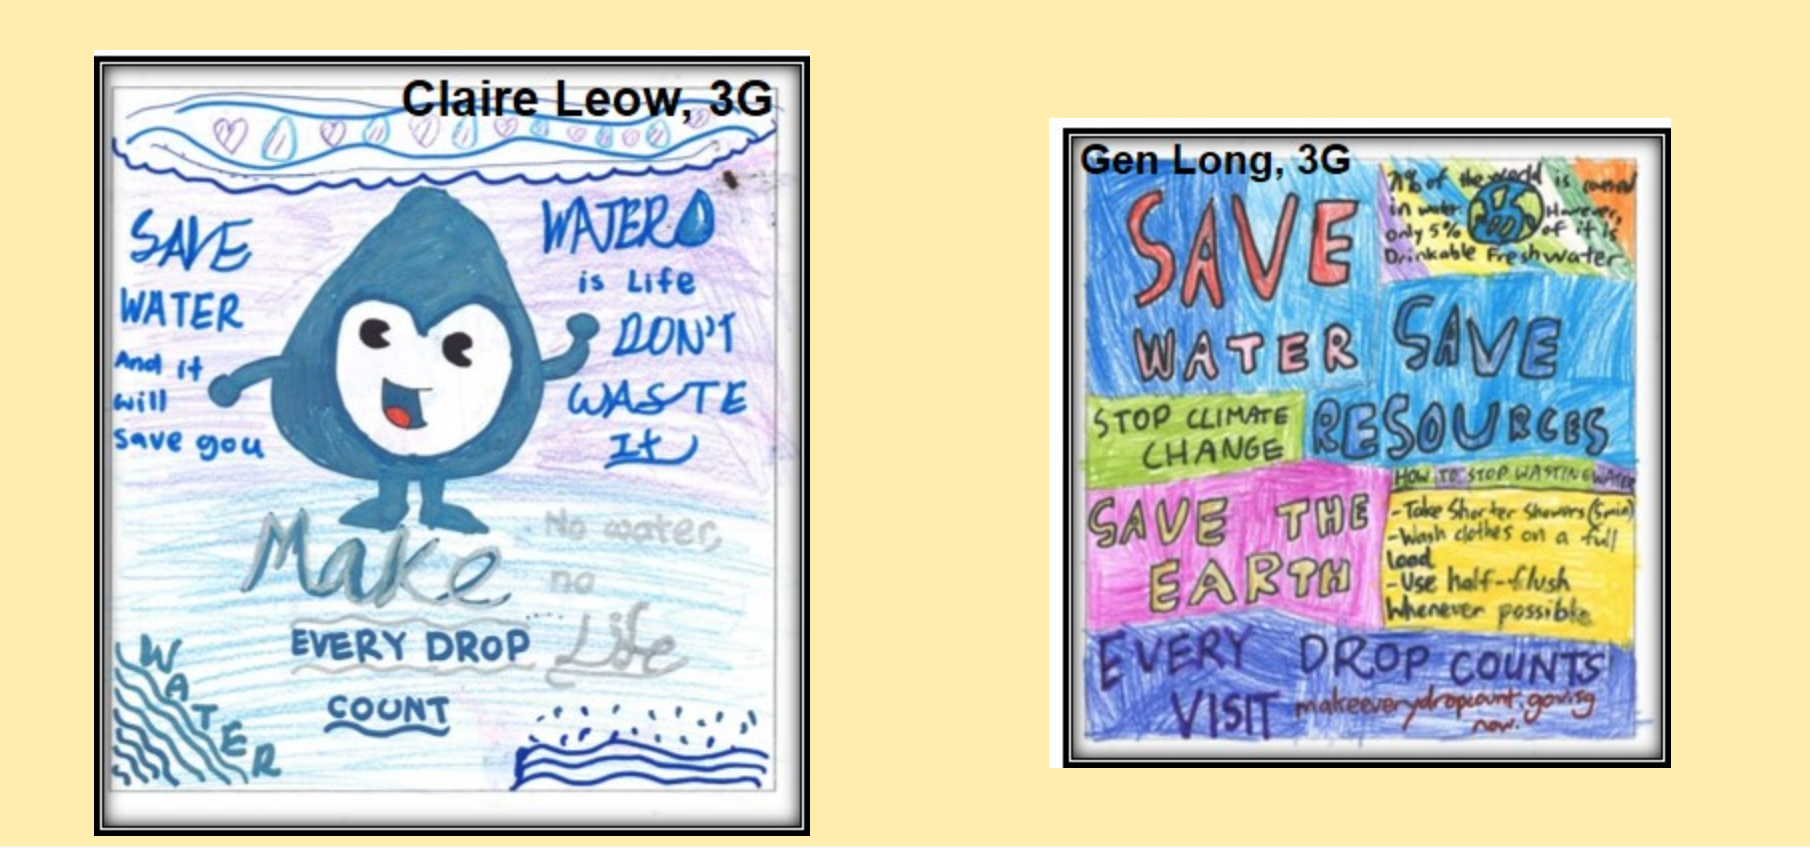 Claire Leow, 3G
SAVE
WATER
And it
will
save you
WATER
is Life
DON'T
WASTE
It
Make
EVERY DROP
COUNT
No water,
no
Life
WATER
Gen Long, 3G
SAVE
WATER
71% of the world is covered
in water. However,
only 5% of it is
Drinkable Freshwater.
SAVE
RESOURCES
STOP CLIMATE
CHANGE
HOW TO STOP WASTING WATER
- Take Shorter Showers (5min)
- Wash clothes on a full
load
- Use half-flush
Whenever possible.
SAVE THE
EARTH
EVERY DROP COUNTS
VISIT makeeverydropcount.gov.sg
now.